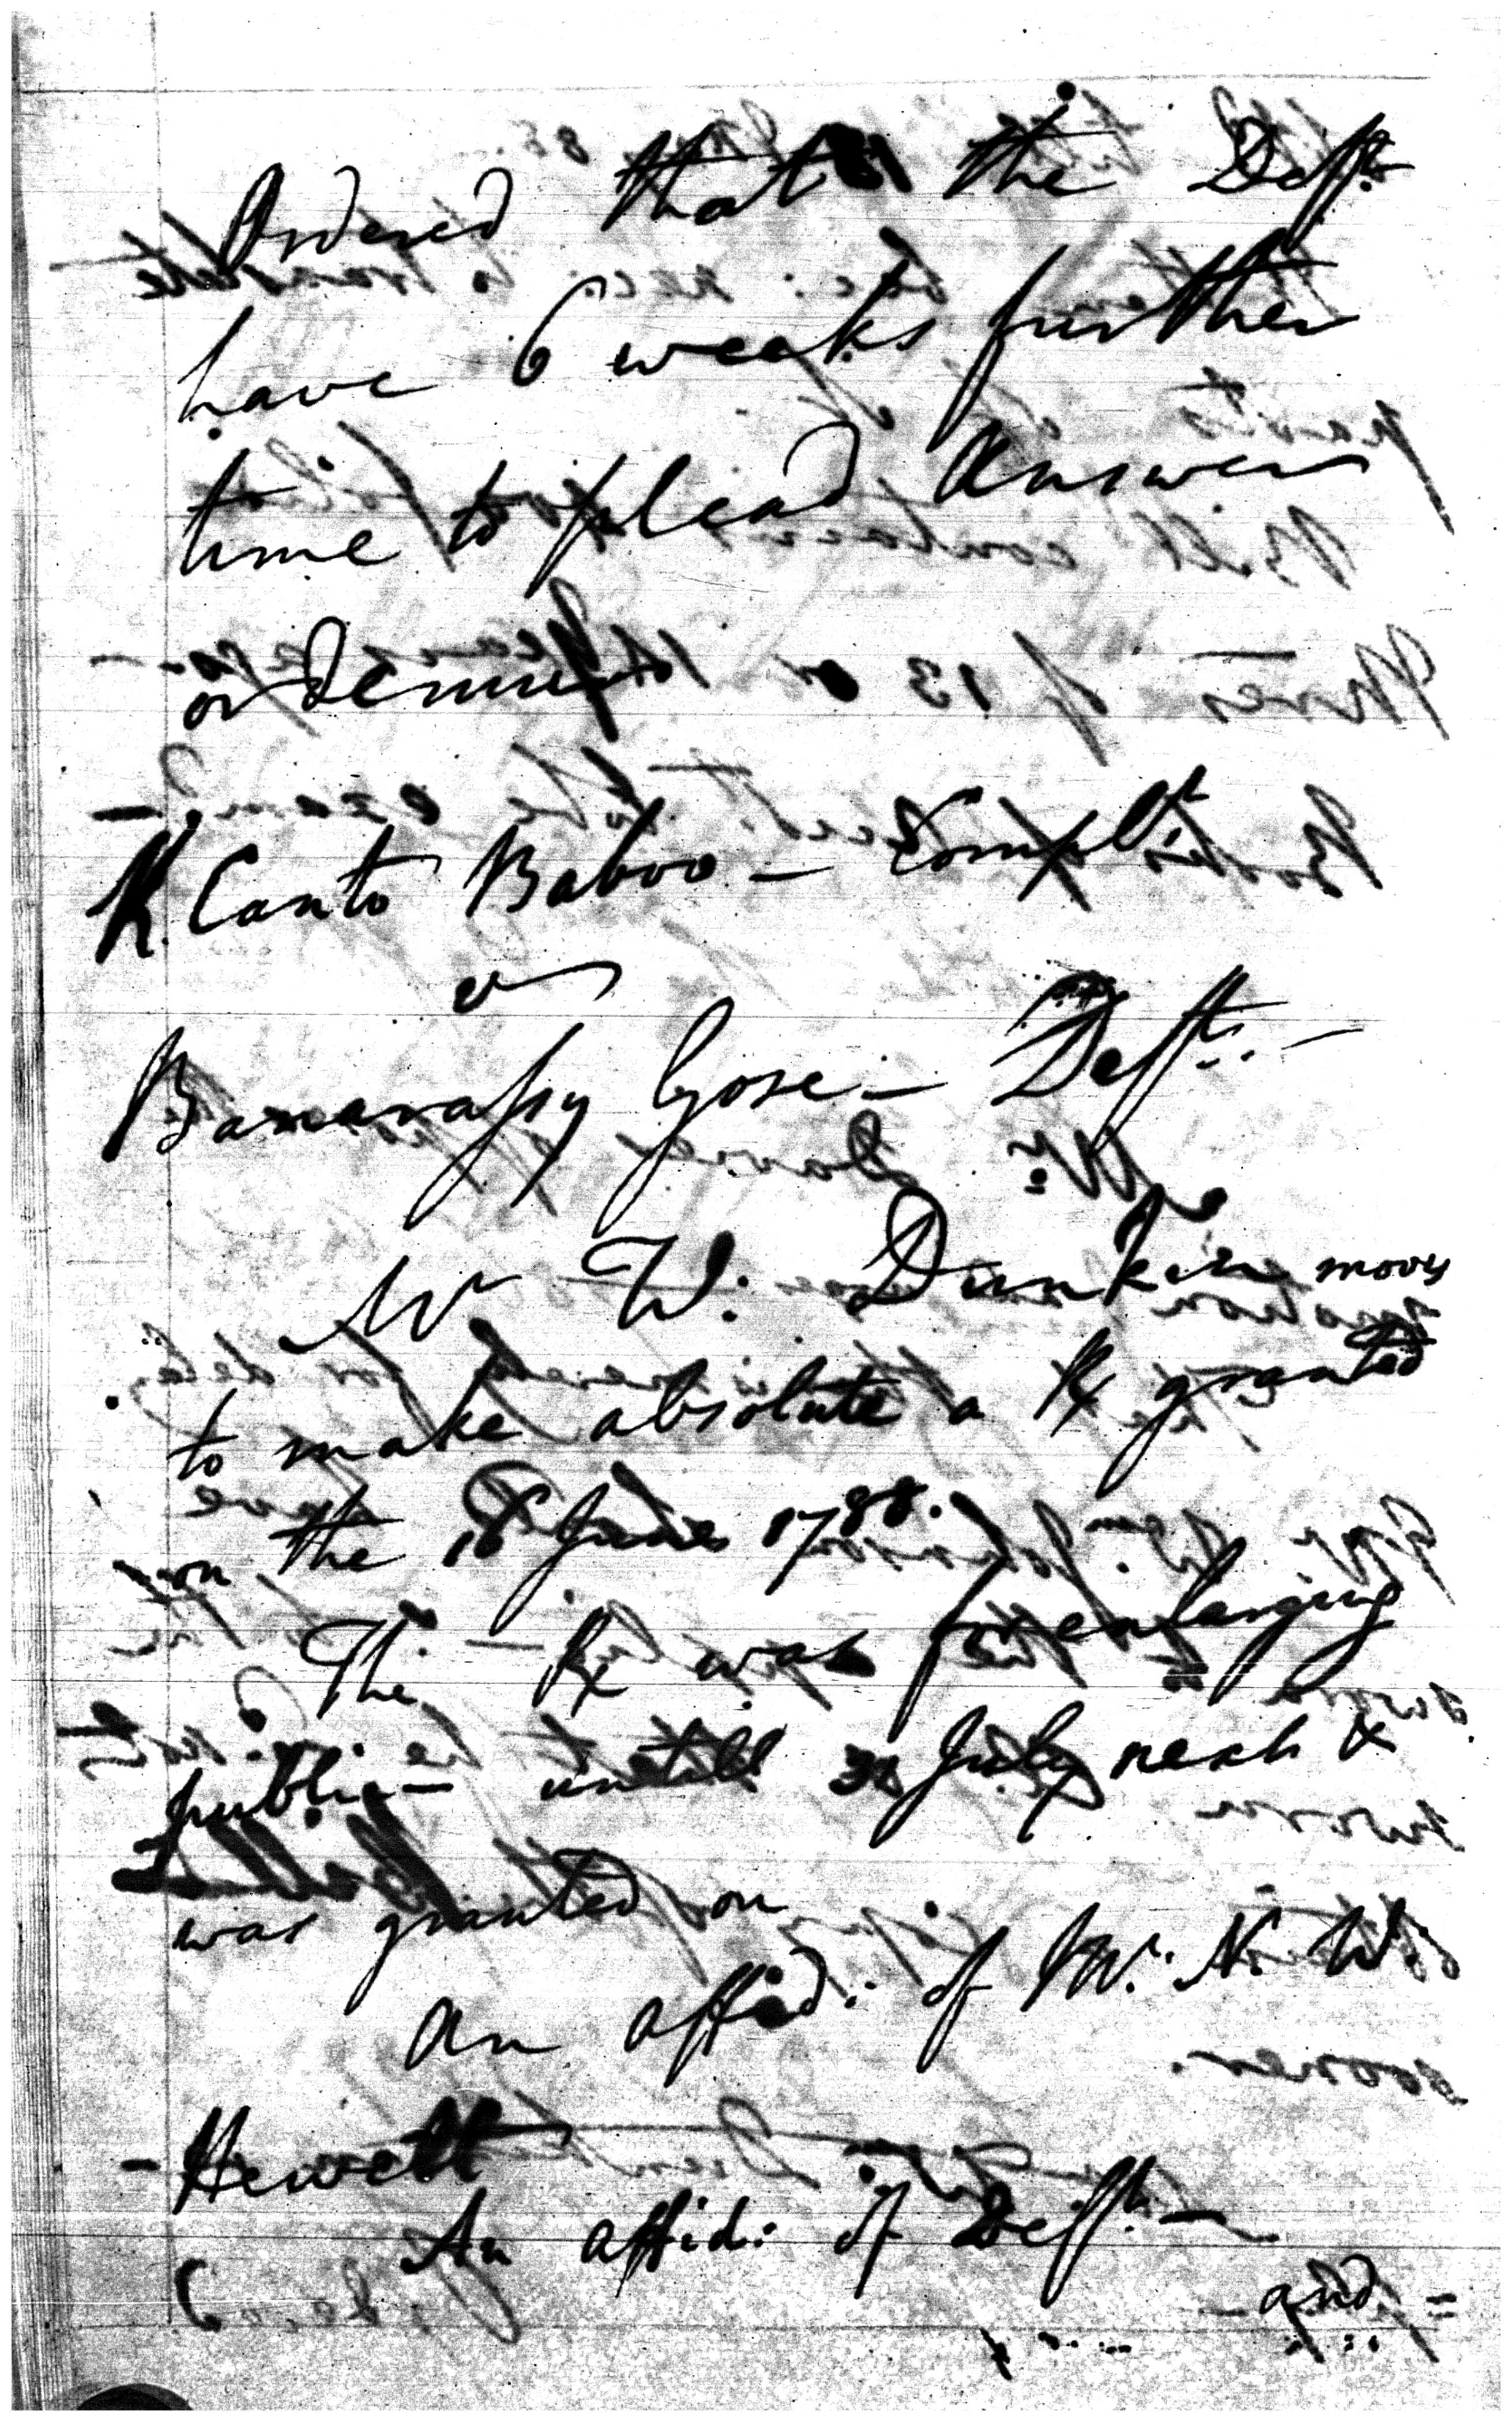 Ordered that the Deft.
have 6 weeks further
time to plead Answer
or demur
K. Canto Baboo — Complt
vs
Banarassy Gose — Deft. —
Mr W. Dunkin moves
to make absolute a Rx granted
on the 18 June 1788.
The Rx was for enlarging
public— untill 31 July next &
was granted on
An affid: of Mr. N. W
Hewett
An affid: of Deft. —
and